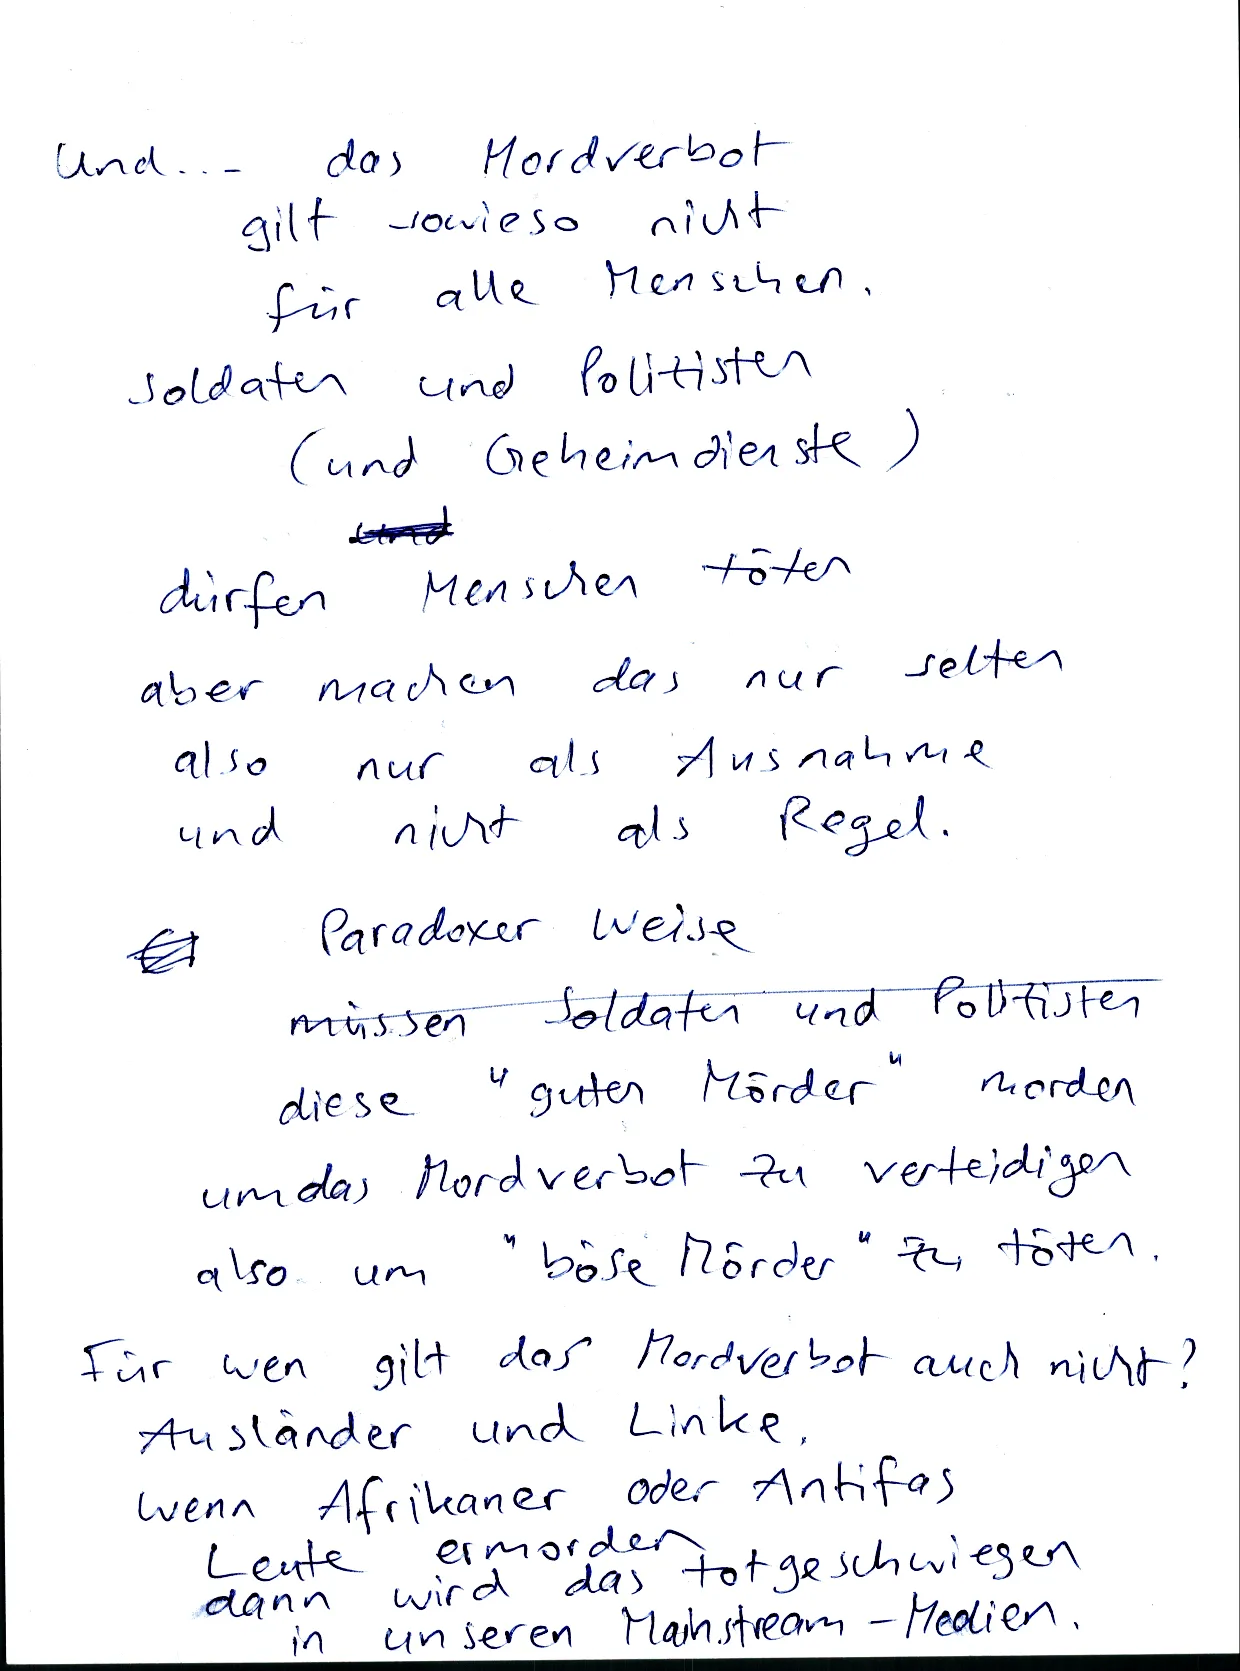 Und... das Mordverbot
gilt sowieso nicht
für alle Menschen.
Soldaten und Politisten
(und Geheimdienste)
und
dürfen Menschen töten
aber machen das nur selten
also nur als Ausnahme
und nicht als Regel.
Paradoxer Weise
müssen Soldaten und Politisten
diese "guten Mörder" morden
um das Mordverbot zu verteidigen
also um "böse Mörder" zu töten.
Für wen gilt das Mordverbot auch nicht?
Ausländer und Linke,
wenn Afrikaner oder Antifas
Leute ermorden
dann wird das totgeschwiegen
in unseren Mainstream-Medien.